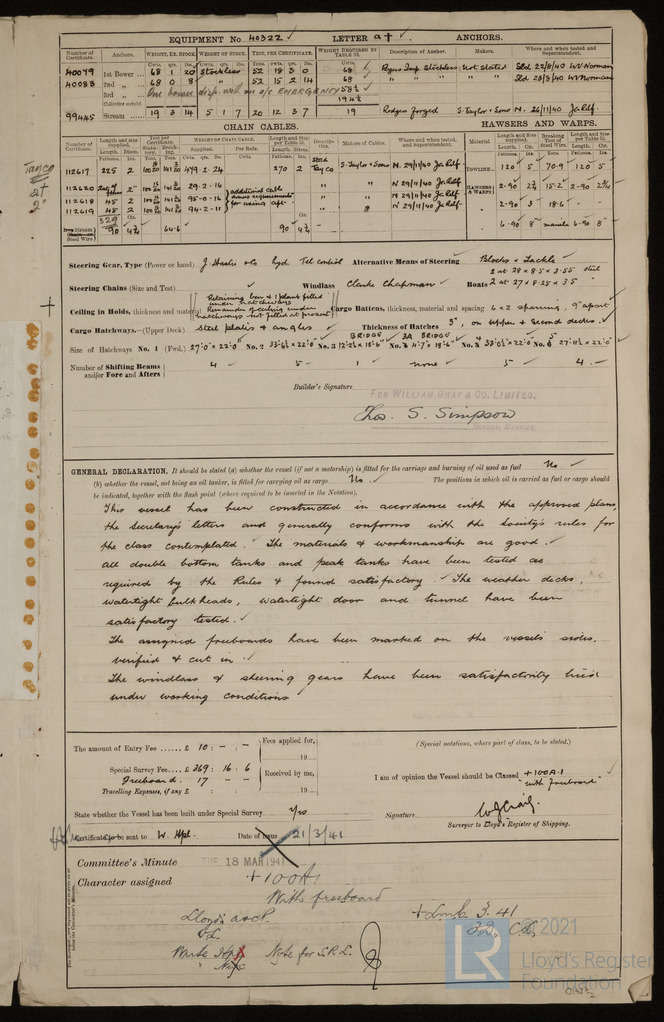 EQUIPMENT No. 40322 LETTER at. ANCHORS.
Number of Certificate. Anchors. WEIGHT, EX. STOCK. WEIGHT OF STOCK. TEST, PER CERTIFICATE. WEIGHT REQUIRED BY TABLE 53. Description of Anchor. Makers. Where and when tested and Superintendent.
40079 1st Bower 68 1 20 Stockless 52 18 3 0 68 Not stated Sld 22/8/40 WV Norman
40083 2nd 68 0 8 52 15 2 14 68 Sld 28/8/40 WV Norman
3rd One bower disp. with on a/c EMERGENCY 58½
Collective weight 194½
99445 Stream 19 3 14 5 1 7 20 12 3 7 19 Rodgers forged S. Taylor & Sons N. 26/11/40
CHAIN CABLES. HAWSERS AND WARPS.
112617 225 2 479-2-24 270 2 Stud Tayco S. Taylor & Sons N. 29/11/40
Tayco
112620 2" 29-2-16 additional cable N 29/11/40
112618 45 2 95-0-16 N 29/11/40
112619 45 2 94-2-11 for using N 29/11/40
Iron Stream or Steel Wire 90 4¾ 64.6 90 4¾
TOWLINE 120 5 70.9 120 5
HAWSERS & WARPS 2-90 2¾ 15.2 2-90 2¾
2-90 3 18.6
6-90 8 manila 6-90 8
Steering Gear, Type (Power or hand) J. Hastie & Co hyd Tel control Alternative Means of Steering Blocks & Tackle
Steering Chains (Size and Test) Windlass Clarke Chapman Boats 2 at 28 x 8.5 x 3.55 steel
2 at 27 x 8.25 x 3.5
Ceiling in Holds, thickness and material Retaining bar & 1 plank fitted under hatchways Remainder of ceiling under hatchways not fitted at present Cargo Battens, thickness, material and spacing 6 x 2 sparring, 9" apart
Cargo Hatchways.-(Upper Deck) Steel plates & angles Thickness of Hatches 3", on upper & second decks.
BRIDGE 3A BRIDGE
Size of Hatchways No. 1 (Fwd.) 27'0" x 22'0" No. 2 33'6½" x 22'0" No. 3 12'2½" x 18'6" No. 4 4'7" x 18'6" No. 5 33'0½" x 22'0" No. 6 27'11½" x 22'0"
Number of Shifting Beams and/or Fore and Afters 4 5 1 none 5 4
Builder's Signature
FOR WILLIAM GRAY & CO. LIMITED.
Thos. S. Simpson
GENERAL MANAGER
GENERAL DECLARATION. It should be stated (a) whether the vessel (if not a motorship) is fitted for the carriage and burning of oil used as fuel No
(b) whether the vessel, not being an oil tanker, is fitted for carrying oil as cargo No. The positions in which oil is carried as fuel or cargo should
be indicated, together with the flash point (where required to be inserted in the Notation).
This vessel has been constructed in accordance with the approved plans,
the Secretary's letters and generally conforms with the Society's rules for
the class contemplated. The materials & workmanship are good.
All double bottom tanks and peak tanks have been tested as
required by the Rules & found satisfactory. The weather decks,
watertight bulkheads, watertight door and tunnel have been
satisfactory tested.
The assigned freeboards have been marked on the vessel's sides,
verified & cut in.
The windlass & steering gears have been satisfactorily tried
under working conditions
The amount of Entry Fee £ 10 : - : - Fees applied for,
19
(Special notations, where part of class, to be stated.)
Special Survey Fee £ 269 : 16 : 6 Received by me,
Freeboard. 17 - -
Travelling Expenses, if any £ 19
I am of opinion the Vessel should be Classed +100A.1
"with freeboard"
State whether the Vessel has been built under Special Survey. Yes
Signature W J Craig.
Surveyor to Lloyd's Register of Shipping.
Certificate to be sent to W. Hpl. Date of issue 21/3/41
Committee's Minute TUE 18 MAR 1941
Character assigned +100A1
With freeboard
Lloyd's A&CP.
+LMC 3.41
C.L.
Write Hpl Note for S.R.L.
© 2021
LR
Lloyd's Register
Foundation